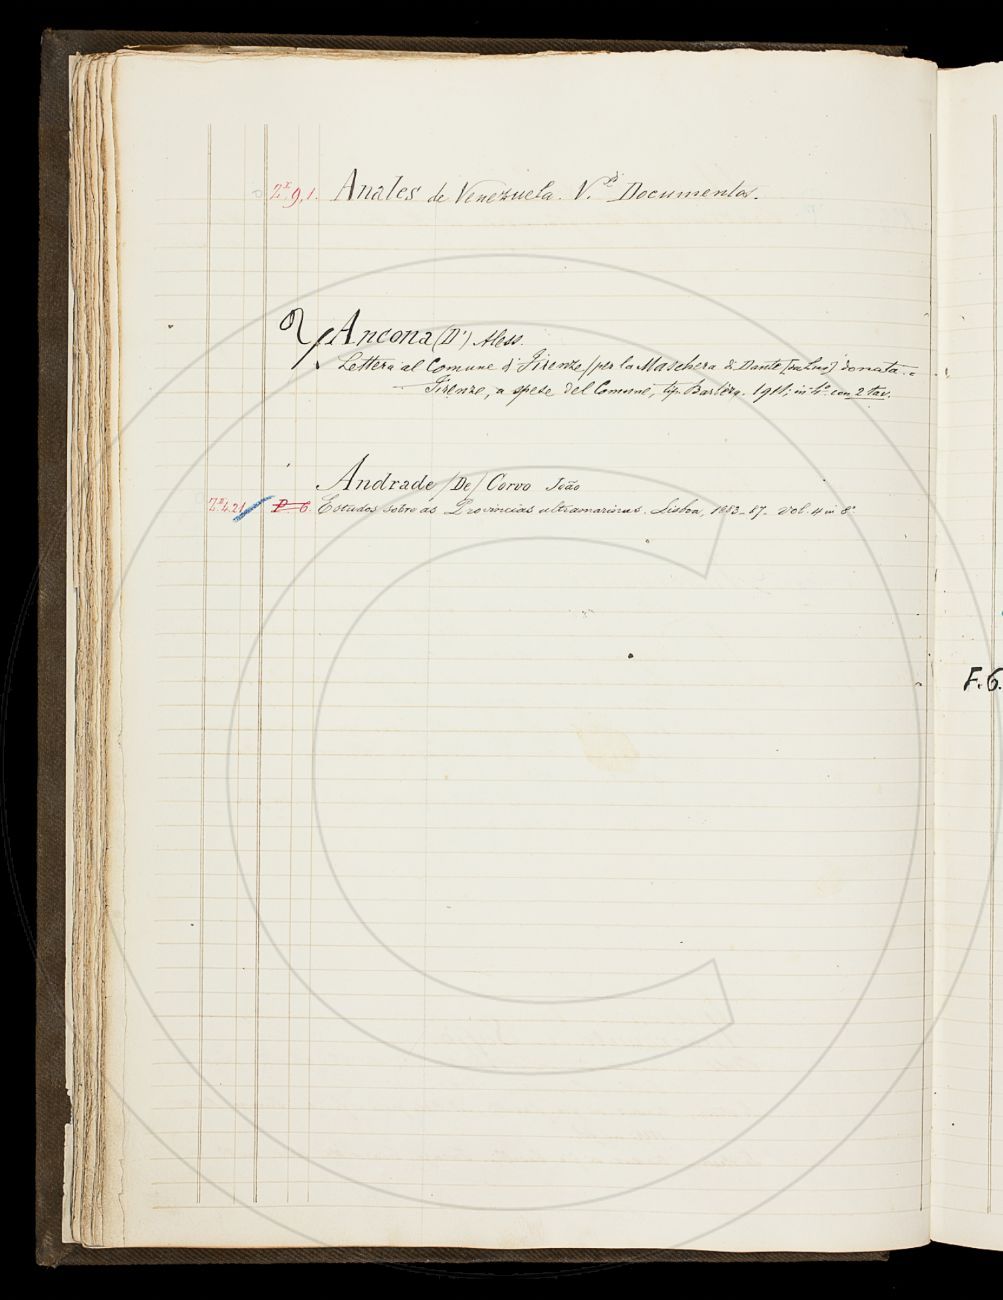 Zx 9,1. Anales de Venezuela. V.di Documentos.
Ancona (D') Aless.
Lettera al Comune di Firenze (per la Maschera di Dante donata -
Firenze, a spese del Comune, tip. Barbèra. 1911; in 4° con 2 tav.
Andrade (De) Corvo João
Zx 4.21 P. 6. Estudos sobre as Provincias ultramarinas. Lisboa, 1883-87. Vol. 4 in 8°
F. 6.